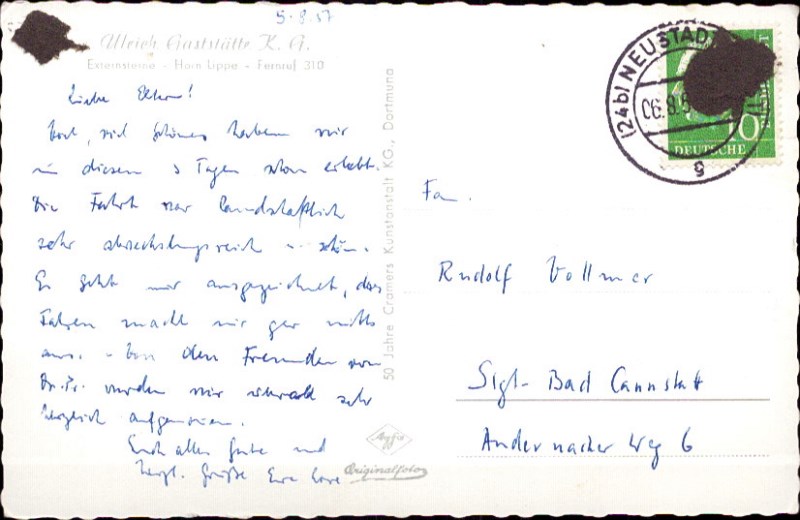 5.8.57
Ulrich Gaststätte K. G.
Externsteine - Horn Lippe - Fernruf 310
Liebe Eltern!
viel Schönes haben wir
in diesen 3 Tagen schon erlebt.
Die Fahrt war landschaftlich
sehr abwechslungsreich u. schön.
Es geht mir ausgezeichnet, das
Fahren macht mir gar nichts
aus. - Von den Freunden von
wurden wir überall sehr
herzlich aufgenommen.
Euch alles Gute und
herzl. Grüße Eure
50 Jahre Cramers Kunstanstalt KG., Dortmund
Agfa
Originalfoto
(24b) NEUSTADT
06.8.5
g
10
DEUTSCHE
Fam.
Rudolf Vollmer
Stgt- Bad Cannstatt
Andernacher Weg 6